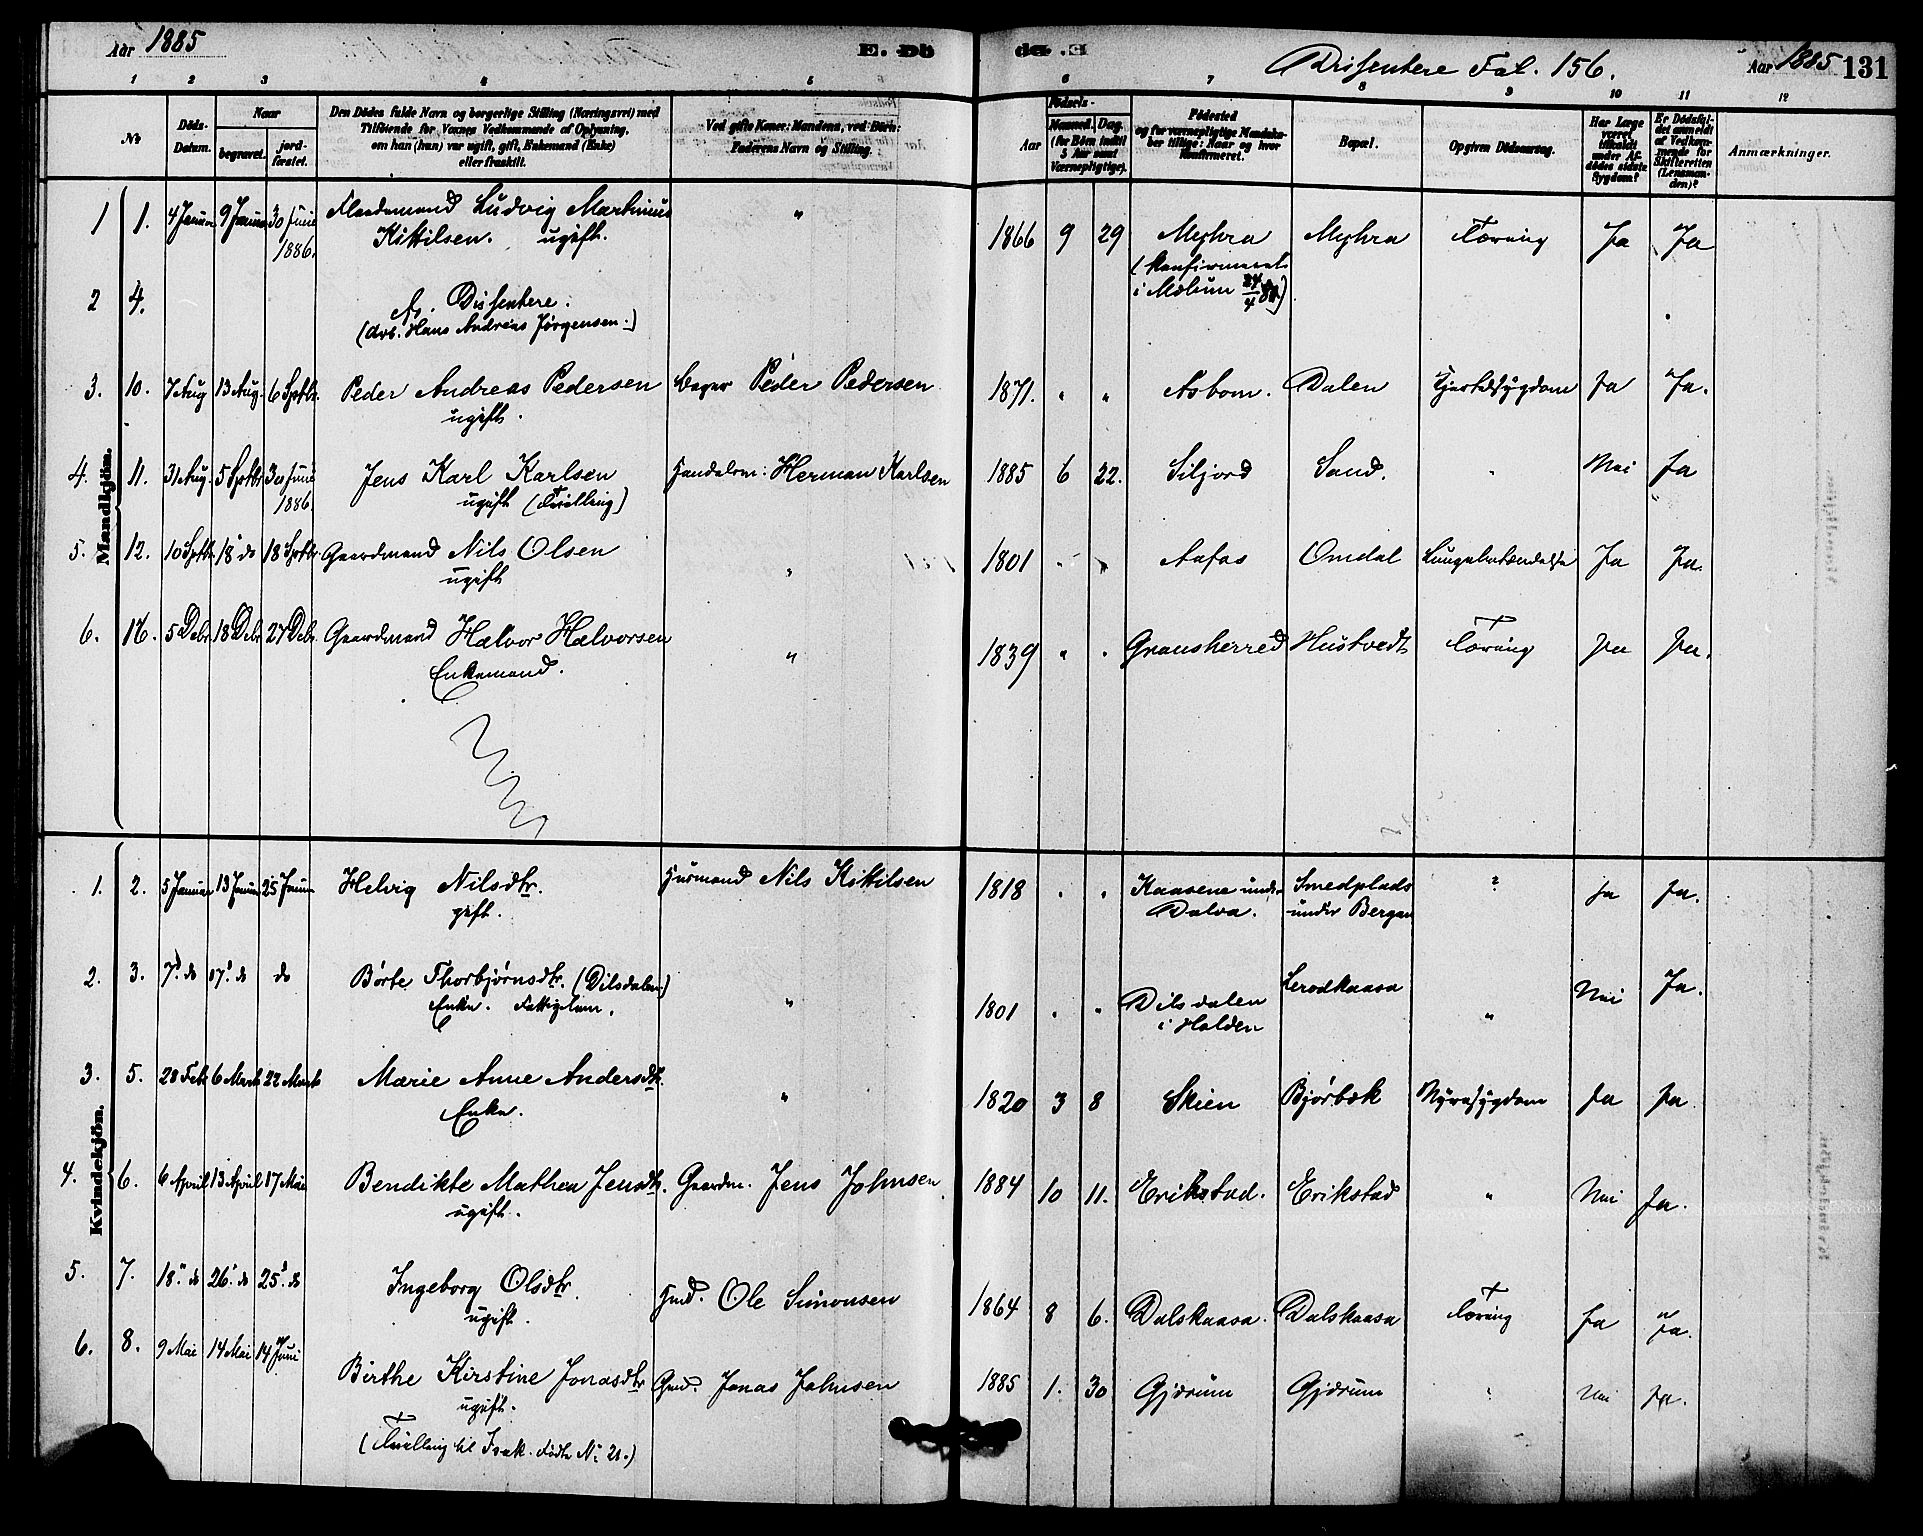 Aar 1885
E. Dö
de. C
Disentere Fol. 156.
Aar 1885 131
1 2 3 4 5 6 7 8 9 10 11 12
No
Döds-Datum.
Naar
begravet.
jord-fæstet.
Den Dödes fulde Navn og borgerlige Stilling (Næringsvei) med
Tilföiende for Voxnes Vedkommende af Oplysning,
om han (hun) var ugift, gift, Enkemand (Enke)
eller fraskilt.
Ved gifte Koner: Mandens, ved Börn:
Faderens Navn og Stilling.
Födsels-
Aar
Maaned. Dag.
(for Börn indtil
5 Aar samt
Værnepligtige).
Födested
og for værnepligtige Mandska-
ber tillige: Naar og hvor
Konfirmeret.
Bopæl.
Opgiven Dödsaarsag.
Har Læge
været
tilkaldt
under Af-
dödes sidste
Sygdom?
Er Dödsfal-
det anmeldt
af Vedkom-
mende for
Skifteretten
(Lensman-
den)?
Anmærkninger.
Mandkjön.
1 1. 4 Januar 9 Januar 30 Juni Ludvig Martinius " 1866 9 29 Myhra Myhra Tæring Ja Ja
1886. Kittilsen. ugift. (Konfirmeret
i Mælum 24/4 )
2 4. Disentere.
(drb. Hans Andreas Jørgensen.)
3. 10. 7 Aug 13 Aug. 6 Septbr. Peder Andreas Pedersen Peder Pedersen 1871. " " Asbom. Dalen Hjertesygdom Ja Ja.
ugift.
4. 11. 31 Aug. 5 Septbr 30 Juni Jens Karl Karlsen Herman Karlsen 1885 6 22. Siljord Sand. " Nei Ja
1886. ugift (Tvilling)
5. 12. 10 Septbr. 18 do 18 Septbr. Gaardmand Nils Olsen " 1801 " " Aafos Omdal Lungebetændelse Ja Ja.
ugift
6. 16. 5 Debr. 18 Debr. 27 Debr. Gaardmand Halvor Halvorsen " 1839 " " Gransherred Hustvedt Tæring Ja Ja.
Enkemand.
Kvindekjön.
1. 2. 5 Januar 13 Januar 25 Januar Helvig Nilsdtr. Husmand Nils Kittilsen 1818 " " Kaasene under Smedplads ? Ja Ja.
gift. Dalva. under Bergan
2. 3. 7. do 17. do do Børte Thorbjørnsdtr. (Dilsdalen) " 1801 " " Dilsdalen Lerodkaasa " Nei Ja.
Enke. Fattiglem. i Holden
3. 5. 28 Febr 6 Marts 22 Marts Marie Anne Andersdtr. " 1820 3 8 Skien Bjørbæk Nyresygdom Ja Ja
Enke.
4. 6. 6 April 13 April 17 Mai Bendikte Mathea Jensdtr. Gaardm. Jens Johnsen 1884 10 11. Erikstad. Erikstad " Nei Ja.
ugift.
5. 7. 18. do 26. do 25. do Ingeborg Olsdtr. Hmd. Ole Simonsen 1864 8 6. Dalskaasa. Dalskaasa Tæring Ja Ja.
ugift.
6. 8. 9 Mai 14 Mai 14 Juni Birthe Kirstine Jonasdtr Gmd. Jonas Johnsen 1885 1. 30 Gjærum Gjærum " Nei Ja.
ugift.
(Tvilling til Isak. Fødte No 21.)